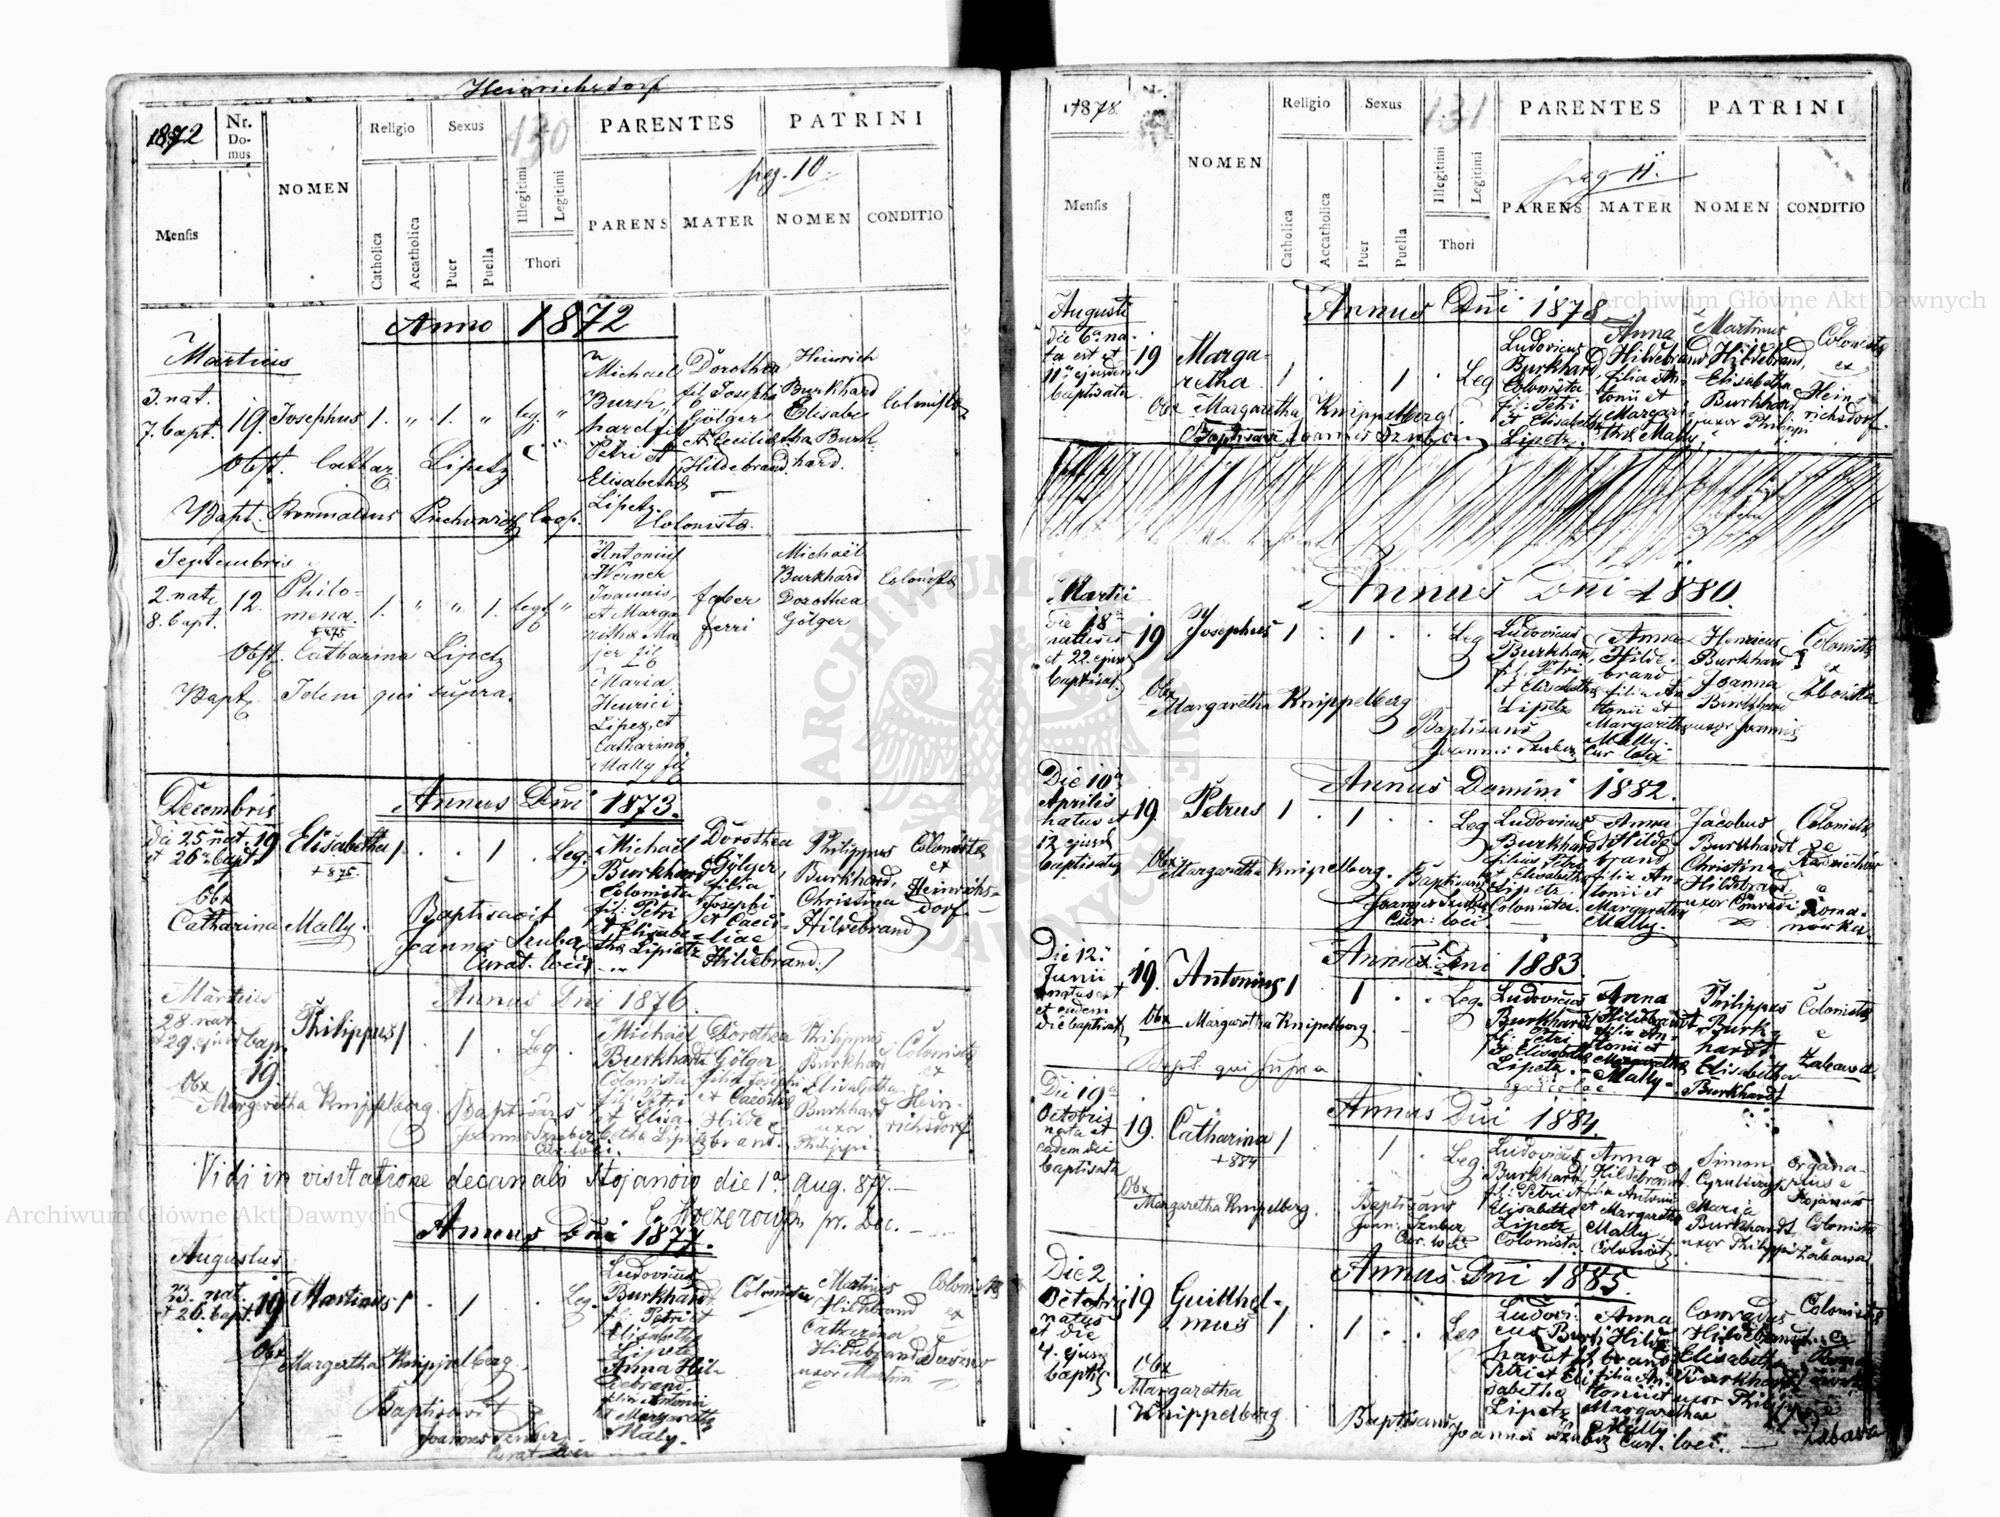 Heinrichsdorf
1872
Nr. Domus
NOMEN
Religio
Sexus
130
PARENTES
PATRINI
pag. 10
Mensis
Catholica
Accatholica
Puer
Puella
Illegitimi
Legitimi
Thori
PARENS
MATER
NOMEN
CONDITIO
Anno 1872
Martius
3. nat.
7. bapt.
19. Josephus 1. " 1. " leg "
Michael
Burk
hard fil
Petri et
Elisabetha
Lipetz
Colonista
Dorothea
fil Josephi
Gölger
et Cecilia
Hildebrand
Heinrich
Burkhard
Elisabe
tha Burk
hard.
Colonista
Obst. Cathar. Lipetz
Bapt. Romualdus
Coop.
Septembris
2. nat.
8. bapt.
12.
Philo-
mena.
+875
1. " " 1.
Antonius
Werner
Joannis
et Marga
ritha Ma
jer fil
Maria
Heinrici
Lipez et
Catharina
Mally fil
faber
ferri
Michaël
Burkhard
Dorothea
Gölger
Colonista
Obst. Catharina Lipetz
Bapt. Idem qui supra.
Annus Dni 1873.
Decembris
Die 25 nat.
et 26 bapt.
19 Elisabetha 1 . . 1 . Leg.
+875.
Michael
Burkhard
Colonista
fil: Petri
et Elisabe-
tha Lipetz
Dorothea
Gölger,
filia
Josephi
et Caeci-
liae
Hildebrand
Philippus
Burkhard,
Christina
Hildebrand
Colonista
ex
Heinrichs-
dorf
Obx
Catharina Mally.
Baptisavit
Joannes Szuber
Curat. loci
Annus Dni 1876.
Martius
28. nat
et 29. ejusd bap.
19
Philippus 1 . 1 . Leg.
Michael
Burkhard
Colonista
fil: Petri
et Elisa-
betha Lipetz
Dorothea
Gölger
filia Josephi
et Caecilia
Hilde
brand.
Philippus
Burkhard
Elisabetha
Burkhard
uxor
Philippi
Colonista
ex
Hein-
richsdorf
Obx
Margaretha Knippelberg.
Baptisans
Joannes Szuber
Cur. loci.
Vidi in visitatione decanali Stojanow die 1a Aug. 877.
Annus Dni 1877.
Augustus
23. nat.
et 26. bapt.
19 Martinus 1 . 1 . Leg.
Ludovicus
Burkhard
fil: Petri et
Elisabetha
Lipetz
Anna Hil-
debrand,
filia Antonii
et Margaretha
Maly.
Colonista
Martinus
Hildebrand
Catharina
Hildebrand
uxor Martin
Colonista
ex
Obx
Margertha Knippelberg
Baptisavit
Joannes Szuber
Curat loci
1878.
NOMEN
Religio
Sexus
131
PARENTES
PATRINI
pag 11.
Mensis
Catholica
Accatholica
Puer
Puella
Illegitimi
Legitimi
Thori
PARENS
MATER
NOMEN
CONDITIO
Annus Dni 1878
Augusti
die 6a na-
ta est et
11a ejusdem
baptisata
19
Marga-
retha
1 . . 1 . Leg
Ludovicus
Burkhard
Colonista
fil: Petri
et Elisabetha
Lipetz.
Anna
Hildebrand
filia An-
tonii et
Margari-
tha Mally
Martinus
Hildebrand,
Elisabetha
Burkhard
uxor Philippi
Colonista
ex
Hein-
richsdorf.
Obx Margaretha Knippelberg
Baptisavit Joannes Szuber
Annus Dni 1880.
Martii
die 18a
natus est
et 22. ejusd
baptisat.
19 Josephus 1 . 1 . . Leg
Ludovicus
Burkhard,
fil: Petri
et Elisabetha
Lipetz
Anna
Hilde-
brand
filia An
tonii et
Margaretha
Mally.
Henricus
Burkhard
Joanna
Burkhard
uxor Joannis
Colonista
ex
Obx
Margaretha Knippelberg
Baptisans
Joannes Szuber Cur. loci
Annus Domini 1882.
Die 10a
Aprilis
natus et
12 ejusd
baptisatus
19. Petrus 1 . 1 . . Leg
Ludovicus
Burkhard
filius Petri
et Elisabetha
Lipetz
Colonista.
Anna
Hilde
brand
filia An-
tonii et
Margaretha
Mally.
Jacobus
Burkhardt
Christina
Hildebrand
uxor Conradi
Colonista
Obx
Margaretha Knipelberg.
Baptisans
Joannes Szuber
Cur: loci.
Annus Dni 1883.
Die 12.
Junii
natus est
et eadem
die baptisat
19. Antonius 1 . 1 . . Leg.
Ludovicus
Burkhard
fil: Petri
et Elisabetha
Lipetz
Anna
Hildebrandt
filia An-
tonii et
Margaretha
Mally
Philippus
Burk
hardt
Elisabetha
Burkhardt
Colonista
e
Zabawa.
Obx Margaretha Knipelberg.
Bapt. qui supra
Annus Dni 1884.
Die 19a
Octobris
nata et
eadem die
baptisata
19. Catharina 1 . . 1 . Leg
+884
Ludovicus
Burkhard
fil: Petri et
Elisabetha
Lipetz
Colonista.
Anna
Hildebrand.
filia Antonii
et Margaretha
Mally
Simon
Maria
Burkhardt,
uxor Philippi
organa-
rius e
Stojanow
Colonista
Zabawa
Obx
Margaretha Knipelberg.
Baptisans
Joan: Szuber
Cur. loci
Annus Dni 1885.
Die 2
Octobris
natus
et die
4. ejusd
baptis
19 Guilhel-
mus 1 . 1 . . Leg
Ludovi-
cus Burk
hardt fil
Petri et Eli
sabetha
Lipetz
Anna
Hilde
brand
filia An-
tonii et
Margarethae
Mally
Conradus
Hildebrandt
Elisabetha
Burkhardt
uxor Philippi
Colonista
Zabawa
Obx
Margaretha
Knippelberg
Baptisans Joannes Szuber Cur. loci.
Archiwum Główne Akt Dawnych
Archiwum Główne Akt Dawnych
ARCHIWUM GŁÓWNE AKT DAWNYCH